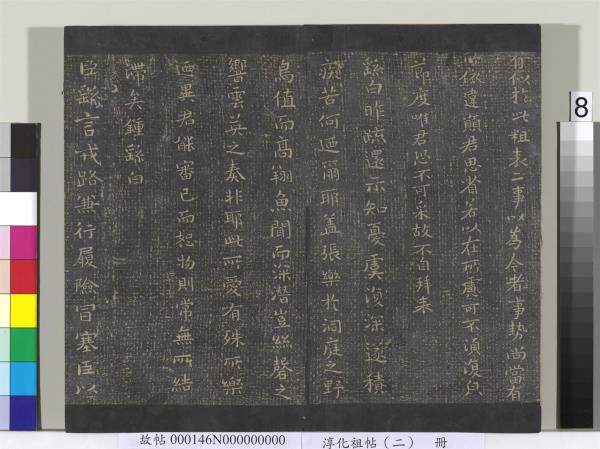 有似於此粗表二事以為今者事勢尚當有
所依違願君思省若以在所慮可不須復白
節度唯君恐不可采故不自拜表
繇白昨疏還示知憂虞復深遂積
疾苦何迺爾耶蓋張樂於洞庭之野
鳥值而高翔魚聞而深潛豈絲磬之
響雲英之奏非耶此所愛有殊所樂
迺異君能審己而恕物則常無所結
滯矣鍾繇白
臣繇言戎路兼行履險冒寒臣以
8
故帖 000146N000000000
淳化祖帖（二） 冊